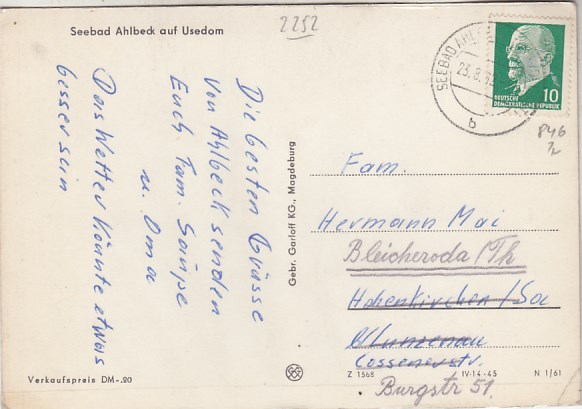 Seebad Ahlbeck auf Usedom
2252
SEEBAD AHL
23.8.6
b
DEUTSCHE
DEMOKRATISCHE REPUBLIK
10
846
Die besten Grüsse
Von Ahlbeck senden
Euch Fam. Saupe
u. Oma
Das Wetter könnte etwas
besser sein
Gebr. Garloff KG., Magdeburg
Fam.
Hermann Mai
Bleicherode/Th
Hohenkirchen/Sa
Lunzenau
Cossenerstr.
Burgstr 51.
Verkaufspreis DM -.20
Z 1568
IV-14-45
N 1/61